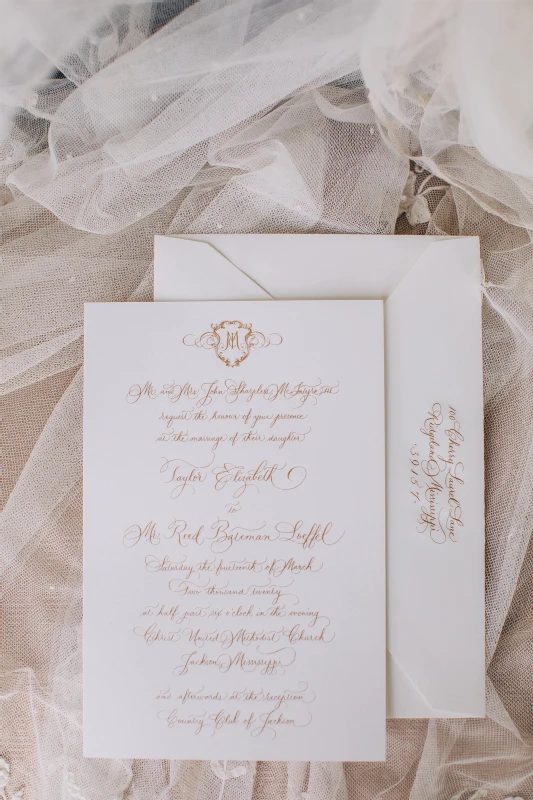 M
Mr. and Mrs. John Sharpless McIntyre
request the honour of your presence
at the marriage of their daughter
Taylor Elizabeth
to
Mr. Reed Bateman Loeffel
Saturday, the fourteenth of March
two thousand twenty
at half past six o'clock in the evening
Christ United Methodist Church
Jackson, Mississippi
and afterwards at the reception
Country Club of Jackson
Cherry Laurel Lane
Ridgeland, Mississippi
39157